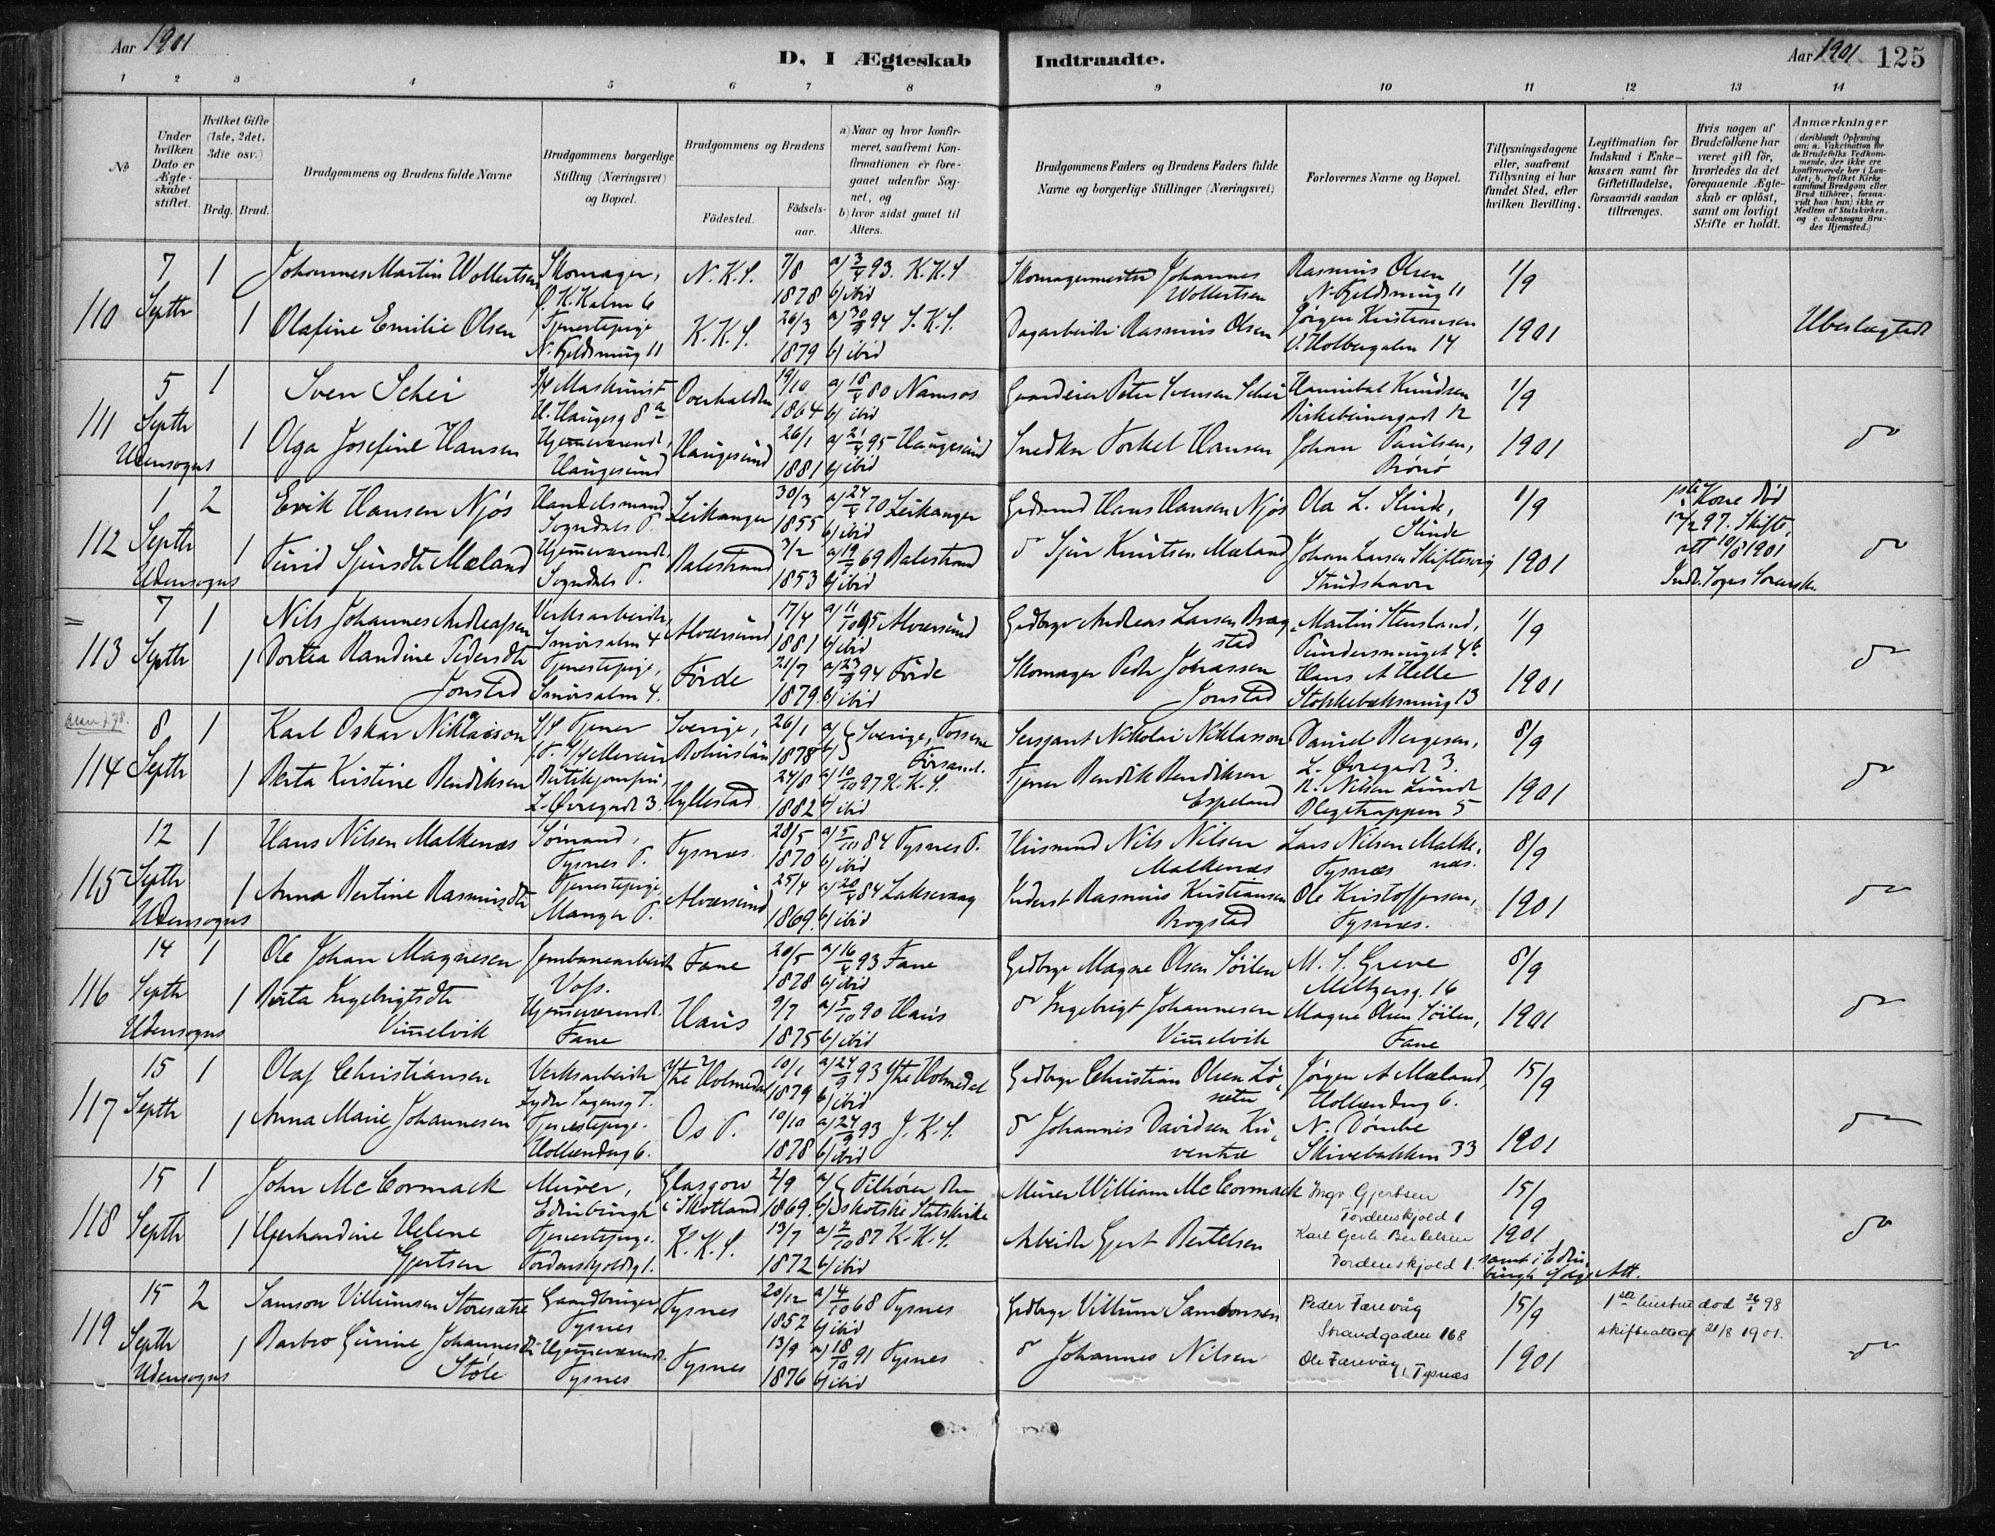 Aar 1901
D. I Ægteskab Indtraadte.
Aar 1901 125
1 2 3 4 5 6 7 8 9 10 11 12 13 14
No
Under hvilken Dato er Ægteskabet stiftet.
Hvilket Gifte (1ste, 2det, 3die osv.)
Brdg. Brud.
Brudgommens og Brudens fulde Navne
Brudgommens borgerlige Stilling (Næringsvei) og Bopæl.
Brudgommens og Brudens
Födested. Födsels-aar.
a) Naar og hvor konfirmeret, saafremt Konfirmationen er foregaaet udenfor Sognet, og
b) hvor sidst gaaet til Alters.
Brudgommens Faders og Brudens Faders fulde Navne og borgerlige Stillinger (Næringsvei)
Forlovernes Navne og Bopæl.
Tillysningsdagene eller, saafremt Tillysning ei har fundet Sted, efter hvilken Bevilling.
Legitimation for Indskud i Enkekassen samt for Giftetilladelse, forsaavidt saadan tiltrænges.
Hvis nogen af Brudefolkene har været gift för, hvorledes da det foregaaende Ægteskab er oplöst, samt om lovligt Skifte er holdt.
Anmærkninger (deriblandt Oplysning om: a. Vakcination for de Brudefolks Vedkommende, der ikke ere konfirmerede her i Landet; b. hvilket Kirkesamfund Brudgom eller Brud tilhörer, forsaavidt han (hun) ikke er Medlem af Statskirken, og c. udensogns Brudes Hjemsted.)
110 7 Septbr 1 Johannes Martin Wollertsen Skomager, Ø. K. Kalm 6 N. K. S. 7/8 1878 a) 3/4 93. K. K. S b) ibid Skomagermester Johannes Wollertsen Rasmus Olsen N. Fjeldsmug 11 1/9
1 Olafine Emilie Olsen Tjenestepige N. Fjeldsmug 11 K. K. S. 26/3 1879 a) 30/9 94 S. K. S. b) ibid Dagarbeider Rasmus Olsen Jørgen Kristiansen V. Holbergalm 14 1901 Ubeslægtede
111 5 Septbr Udensogns 1 Sven Schei Maskinist H. Haugesg 8 a Overhalden 19/10 1864 a) 18/4 80 Namsos b) ibid Gaardeier Peter Svensen Schei Hannibal Knudsen Birkebeinergad 12 1/9
1 Olga Josefine Hansen Hjemmeværende, Haugesund Haugesund 26/1 1881 a) 21/4 95 Haugesund b) ibid Snedker Torkel Hansen Johan Paulsen, Brønø 1901 do
112 1 Septbr Udensogns 2 Erik Hansen Njøs Handelsmand Sogndals P. Leikanger 30/3 1855 a) 24/4 70 Leikanger b) ibid Grdmd Hans Hansen Njøs Ola L. Slinde, Slinde 1/9 1ste Kone død 12/2 97. Skifte att 10/8 1901
1 Turid Sjursdtr Mæland Hjemmeværende, Sogndals P. Balestrand 3/2 1853 a) 19/9 69 Balestrand b) ibid do Sjur Knutsen Mæland Johan Larsen Skiftesvig Strudshavn 1901 Indr. Sogns Sorensk. do
113 7 Septbr 1 Nils Johannes Andreassen Verksarbeider, Smörsalm 4 Alversund 17/4 1881 a) 11/10 95 Alversund b) ibid Grdbrgr Andreas Larsen Brag stad Martin Stensland, Tundersmuget 4 b 1/9
1 Dortea Randine Pedersdtr Jonstad Tjenestepige, Smörsalm 4. Förde 21/7 1879 a) 23/9 94 Förde b) ibid Skomager Peder Johassen Jonstad Hans A Helle Stokkebæksmug 13 1901 do
114 8 Septbr 1 Karl Oskar Niklasson Tjener Sverige, Bohuslän 26/1 1878 a) b) Sverige, Tossene Forsaml. Sergant Nikolai Niklasson Daniel Bergesen, L. Øvregade 3. 8/9
1 Berta Kristine Bendiksen Butikjomfru, L. Øvregade 3 Hyllestad 24/8 1882 a) 10/10 97 K. K. S. b) ibid Tjener Bendik Bendiksen Espeland N. Nilsen Lund Blegetrappen 5 1901 do
115 12 Septbr Udensogns 1 Hans Nilsen Malkenæs Sømand, Tysnes P. Tysnes 28/5 1870 a) 5/10 84 Tysnes P. b) ibid Husmand Nils Nilsen Malkenæs Lars Nilsen Malkenæs. Tysnæs 8/9
1 Anna Bertine Rasmusdtr Tjenestepige, Manger P. Alversund 25/4 1869. a) 20/4 84 Laksevaag b) ibid Inderst Rasmus Kristiansen Brogstad Ole Kristoffersen, Tysnæs. 1901 do
116 14 Septbr Udensogns 1 Ole Johan Magnesen Jernbanearbeider Voss. Fane 20/5 1878 a) 16/4 93 Fane b) ibid Grdbrgr Magne Olsen Söilen M. S. Greve Meltzersg. 16 8/9
1 Berta Ingebrigtsdtr Vimmelvik Hjemmeværende. Fane Haus 9/7 1875 a) 5/10 90 Haus b) ibid do Ingebrigt Johannesen Vimmelvik Magne Olsen Söilen, Fane 1901 do
117 15 Septbr 1 Olaf Christiansen Verksarbeider Ytre Holmedal 10/1 1879 a) 24/9 93 Ytre Holmedal b) ibid Grdbrgr Christian Olsen Lö- seter Jörgen A Mæland, Hollendrg 6. 15/9
1 Anna Marie Johannesen Tjenestepige. Hollendrg 6. Os P. 10/10 1878 a) 24/9 93 J. K. S. b) ibid do Johannis Davidsen Ku- ventræ N. Dömbe Skivebakken 33 1901 do
118 15 Septbr 1 John Mc Cormack Murer, Edinburgh Glasgow i Skotland 2/9 1869. a) b) Tilhörer den skotske Statskirke Murer William Mc Cormack Ingv Gjertsen Tordenskjold 1 15/9
1 Gjerhardine Helene Gjertsen Tjenestepige. Tordenskjoldg 1. K. K. S. 13/7 1872 a) 2/10 87 K. K. S. b) ibid Arbeider Gjert Bertelsen Karl Gerh. Bertelsen Tordenskjold 1. 1901 samt i Edinburgh ifölge Att. do
119 15 Septbr Udensogns 2 Samson Villumsen Storesætre Gaardbruger, Tysnes Tysnes 20/12 1852 a) 4/10 68 Tysnes b) ibid Grdbrgr Villum Samsonsen Peder Færevåg Strandgaden 168 15/9 1ste hustru död 26/ 98 skifteattest 21/8 1901.
1 Barbro Gurine Johannesdtr Stole Hjemmeværende. Tysnes Tysnes 13/9 1876 a) 18/10 91 Tysnes b) ibid do Johannes Nilsen Ole Færevåg, Tysnæs 1901 do